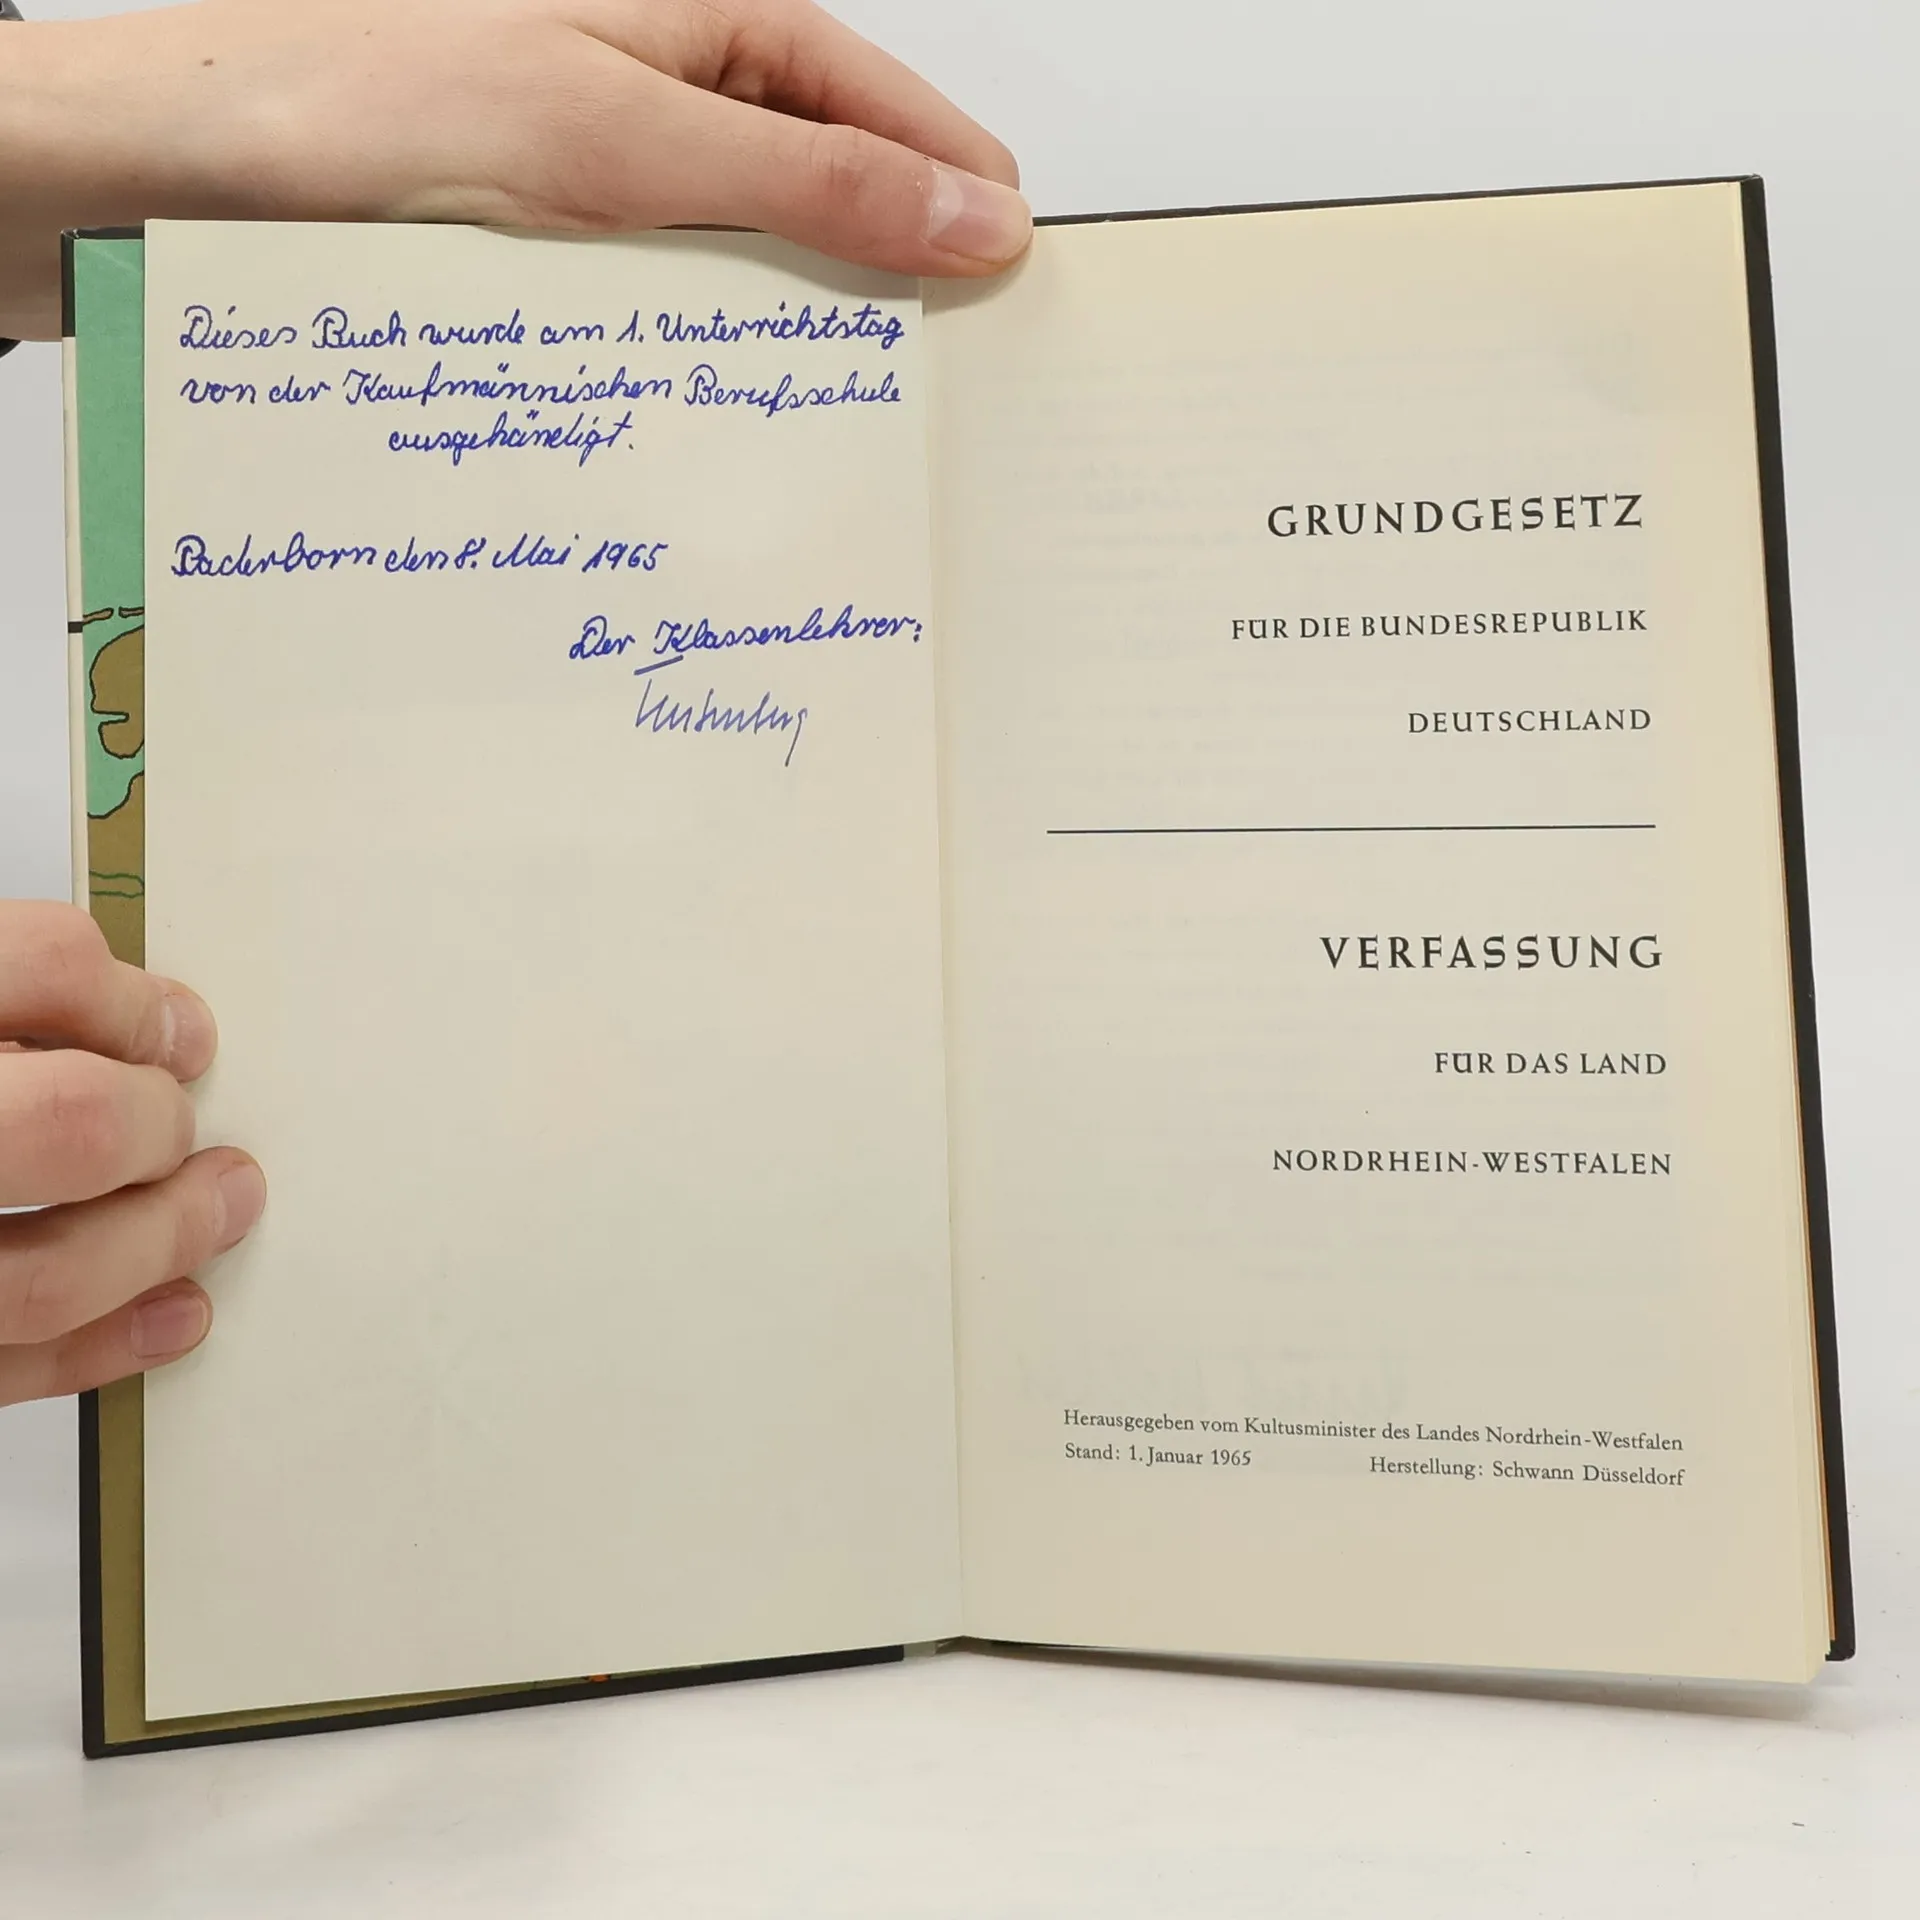 Dieses Buch wurde am 1. Unterrichtstag
von der Kaufmännischen Berufsschule
ausgehändigt.
Paderborn den 8. Mai 1965
Der Klassenlehrer:
GRUNDGESETZ
FÜR DIE BUNDESREPUBLIK
DEUTSCHLAND
VERFASSUNG
FÜR DAS LAND
NORDRHEIN-WESTFALEN
Herausgegeben vom Kultusminister des Landes Nordrhein-Westfalen
Stand: 1. Januar 1965 Herstellung: Schwann Düsseldorf